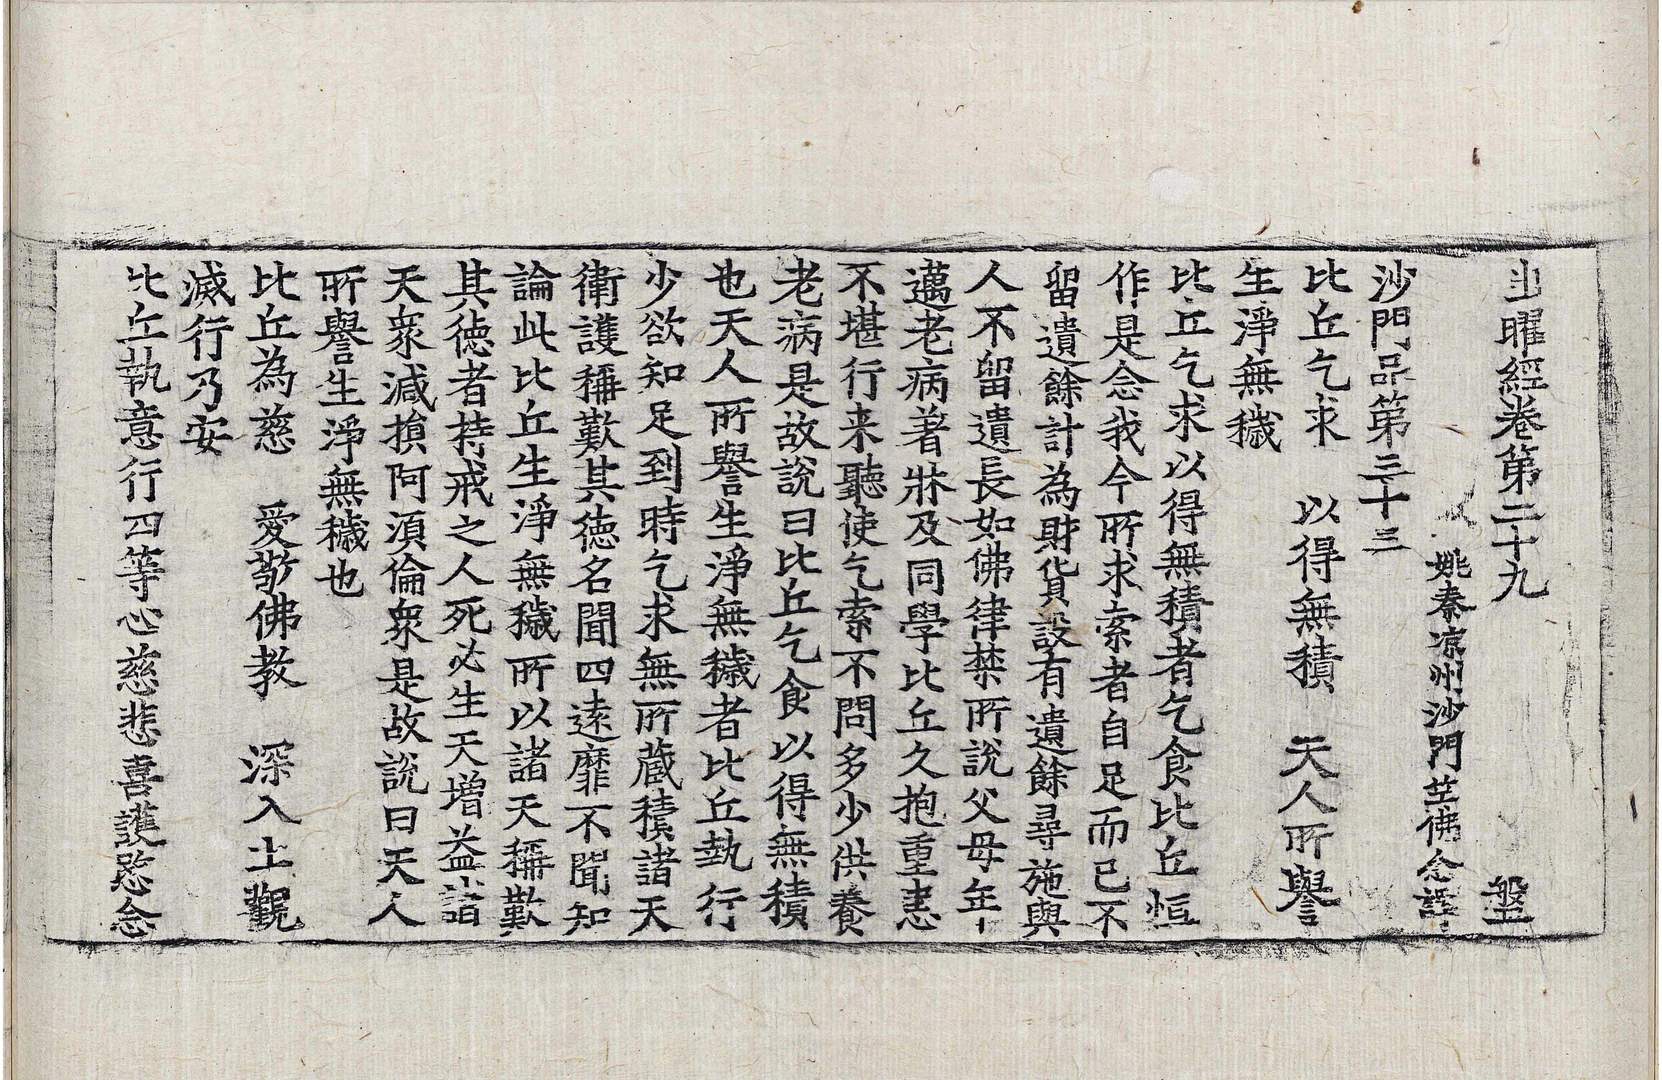 出曜經卷第二十九 盤
姚秦涼州沙門竺佛念譯
沙門品第三十三
比丘乞求 以得無積 天人所譽
生淨無穢
比丘乞求以得無積者乞食比丘恒
作是念我今所求索者自足而已不
留遺餘計為財貨設有遺餘尋施與
人不留遺長如佛律禁所說父母年
邁老病著牀及同學比丘久抱重患
不堪行来聽使乞索不問多少供養
老病是故說曰比丘乞食以得無積
也天人所譽生淨無穢者比丘執行
少欲知足到時乞求無所藏積諸天
衛護稱歎其德名聞四遠靡不聞知
論此比丘生淨無穢所以諸天稱歎
其德者持戒之人死必生天增益諸
天衆減損阿須倫衆是故說曰天人
所譽生淨無穢也
比丘為慈 愛敬佛教 深入止觀
滅行乃安
比丘執意行四等心慈悲喜護愍念